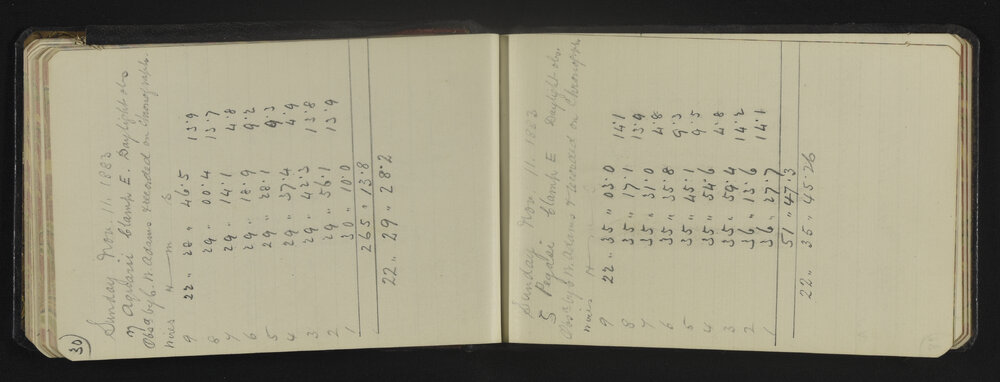 30
Sunday Nov. 11. 1883
η Aquarii Clamp E. Daylight obs
Obsd by C. W. Adams & recorded on Chronograph
Wires H m s
9 22 " 28 " 46.5 13.9
8 29 " 00.4 13.7
7 29 " 14.1 4.8
6 29 " 18.9 9.2
5 29 " 28.1 9.3
4 29 " 37.4 4.9
3 29 " 42.3 13.8
2 29 " 56.1 13.9
1 30 " 10.0
265 " 13.8
22 " 29 " 28.2
Sunday Nov. 11. 1883
ζ Pegasi. Clamp E Daylight obs
Obsd by C. W. Adams & recorded on Chronograph
Wires H m s
9 22 " 35 " 03.0 14.1
8 35 " 17.1 13.9
7 35 " 31.0 4.8
6 35 " 35.8 9.3
5 35 " 45.1 9.5
4 35 " 54.6 4.8
3 35 " 59.4 14.2
2 36 " 13.6 14.1
1 36 " 27.7
51 " 47.3
22 " 35 " 45.26